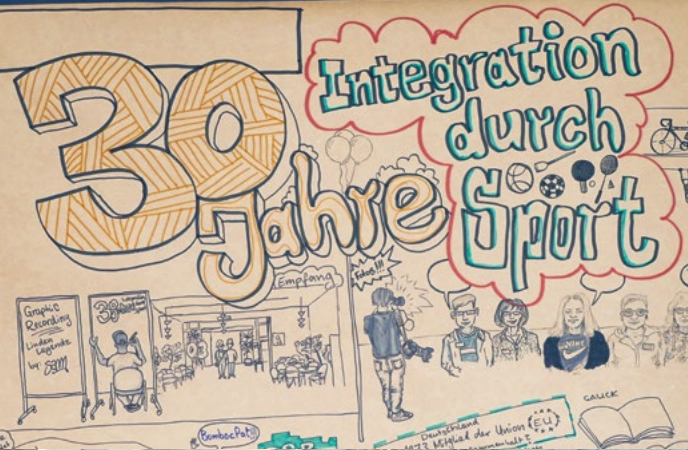 30
Jahre
Integration
durch
Sport
Empfang
Fotos!!!
Graphic
Recording
Linden
Legends
by: Sam
30
BomboePat
NIKE
GAUCK
Deutschland
1973 Mitglied der Union
EU